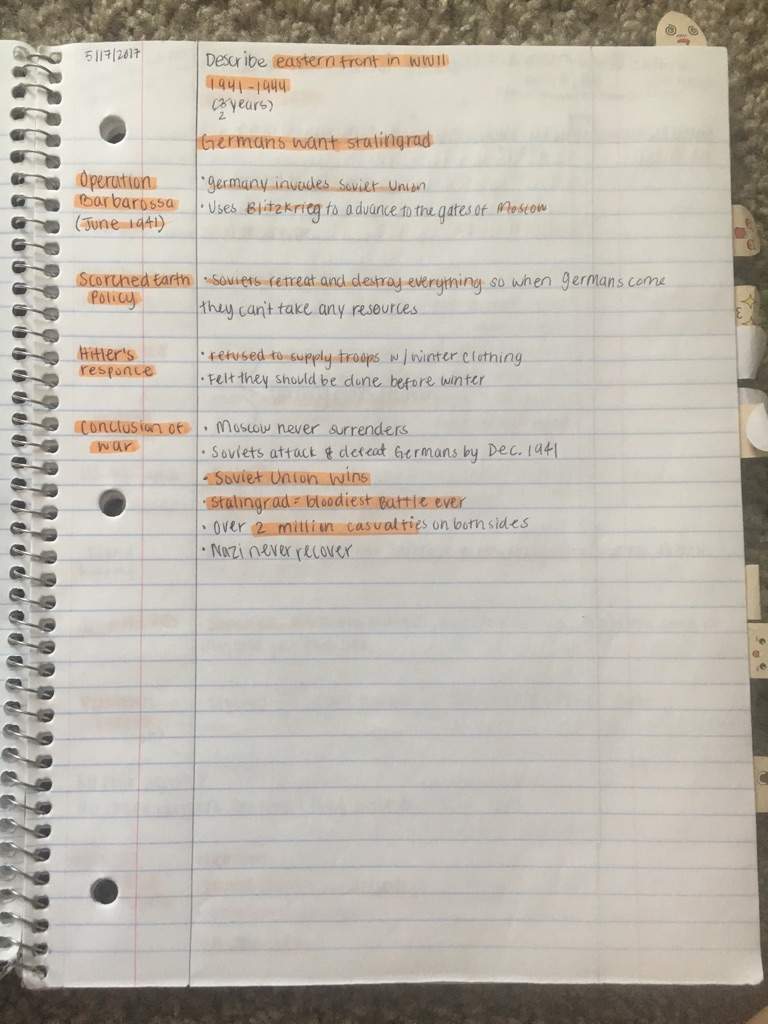 5/17/2017
Describe eastern front in WWII
1941-1944
(3 years)
2
Germans want stalingrad
Operation
Barbarossa
(June 1941)
• germany invades Soviet Union
• Uses Blitzkrieg to advance to the gates of Moscow
Scorched Earth
Policy
• Soviets retreat and destroy everything so when germans come
they can't take any resources
Hitler's
responce
• refused to supply troops w/ winter clothing
• Felt they should be done before winter
Conclusion of
war
• Moscow never surrenders
• Soviets attack & defeat Germans by Dec. 1941
• Soviet Union wins
• Stalingrad = bloodiest Battle ever
• Over 2 million casualties on both sides
• Nazi never recover